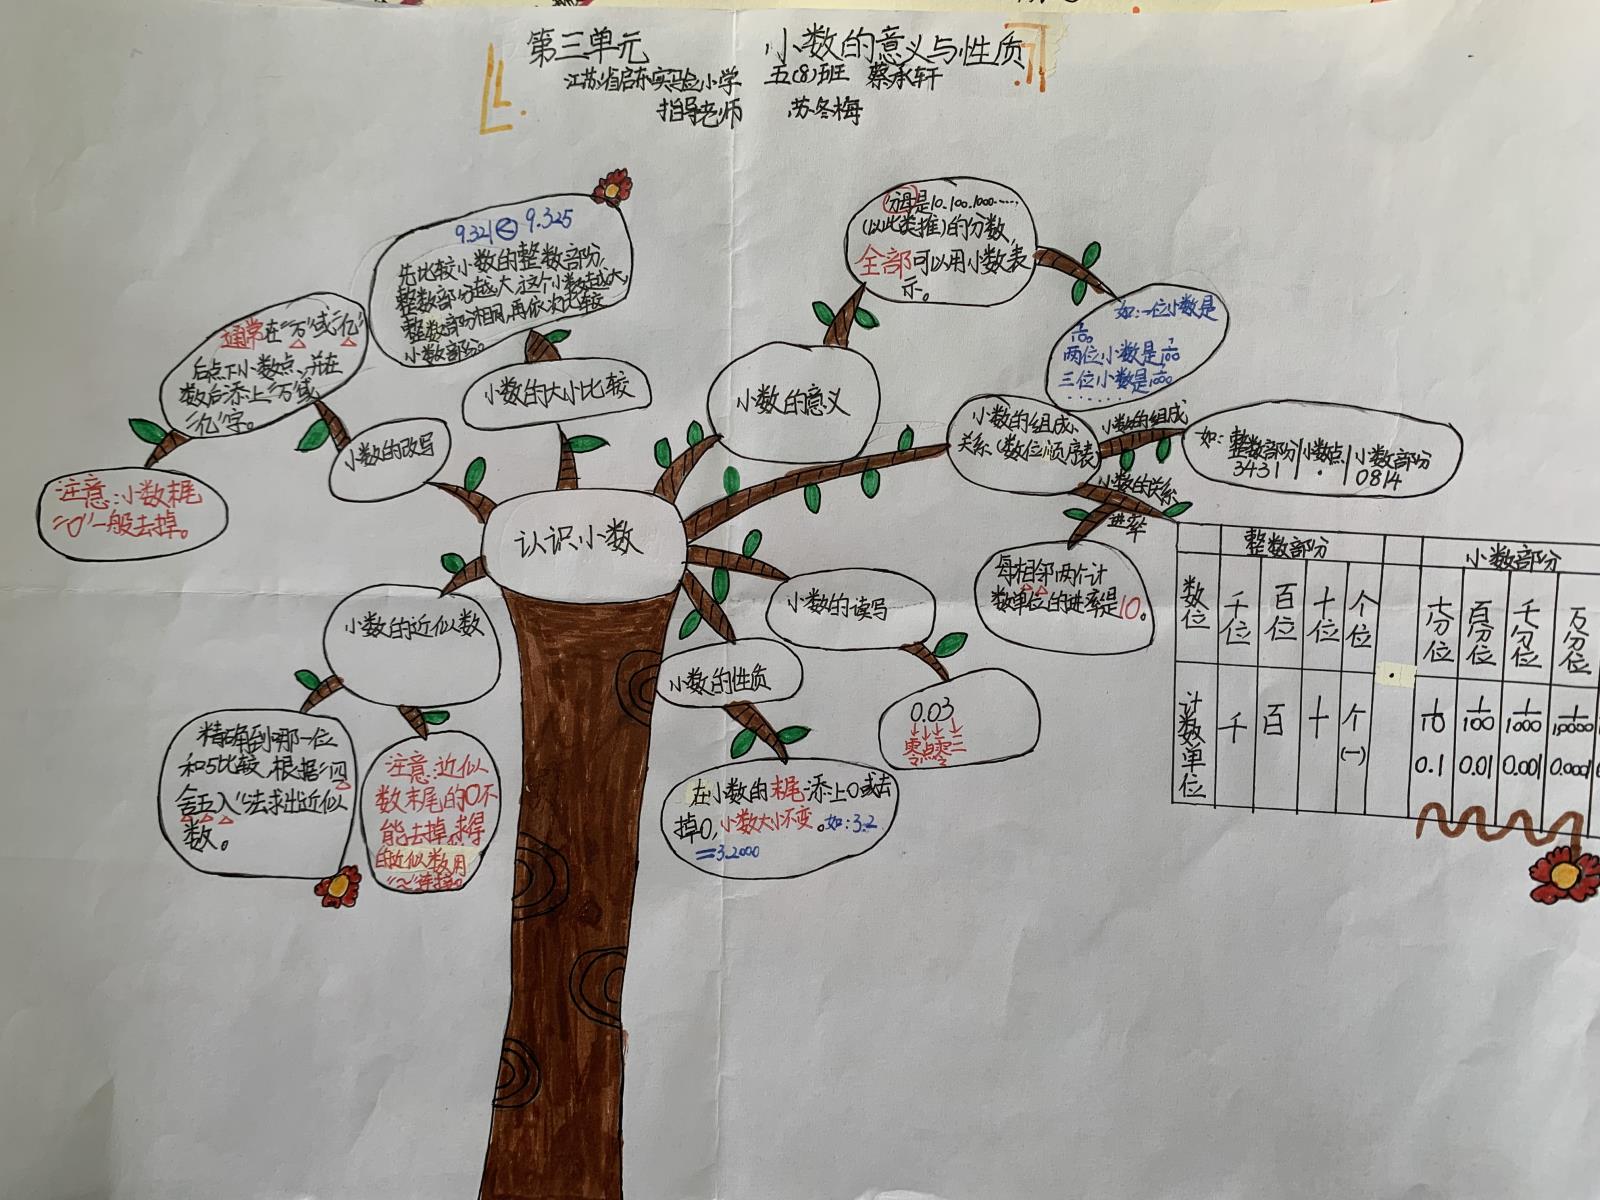 第三单元 小数的意义与性质
江苏省启东实验小学 五(8)班 蔡承轩
指导老师 苏冬梅
认识小数
小数的改写
通常在“万”或“亿”
后点下小数点,并在
数后添上“万”或
“亿”字。
注意:小数末尾
“0”一般去掉。
小数的大小比较
9.321<9.325
先比较小数的整数部分,
整数部分越大,这个小数越大,
整数部分相同,再依次比较
小数部分。
小数的意义
分母是10.100.1000......
(以此类推)的分数,
全部可以用小数表
示。
如:一位小数是
1/10。
两位小数是1/100
三位小数是1/1000
......
小数的组成
关系(数位顺序表)
小数的组成
如: 整数部分|小数点|小数部分
3431 . 0814
小数的关系
进率
每相邻两个计
数单位的进率是10。
整数部分 小数部分
数位 千位 百位 十位 个位 . 十分位 百分位 千分位 万分位
计数单位 千 百 十 个(一) 1/10 1/100 1/1000 1/10000
0.1 0.01 0.001 0.0001
小数的读写
0.03
小数的性质
在小数的末尾添上0或去
掉0,小数大小不变。如:3.2
=3.2000
小数的近似数
精确到哪一位
和5比较,根据“四
舍五入”法求出近似
数。
注意:近似
数末尾的0不
能去掉,求得
的近似数用
“≈”连接。